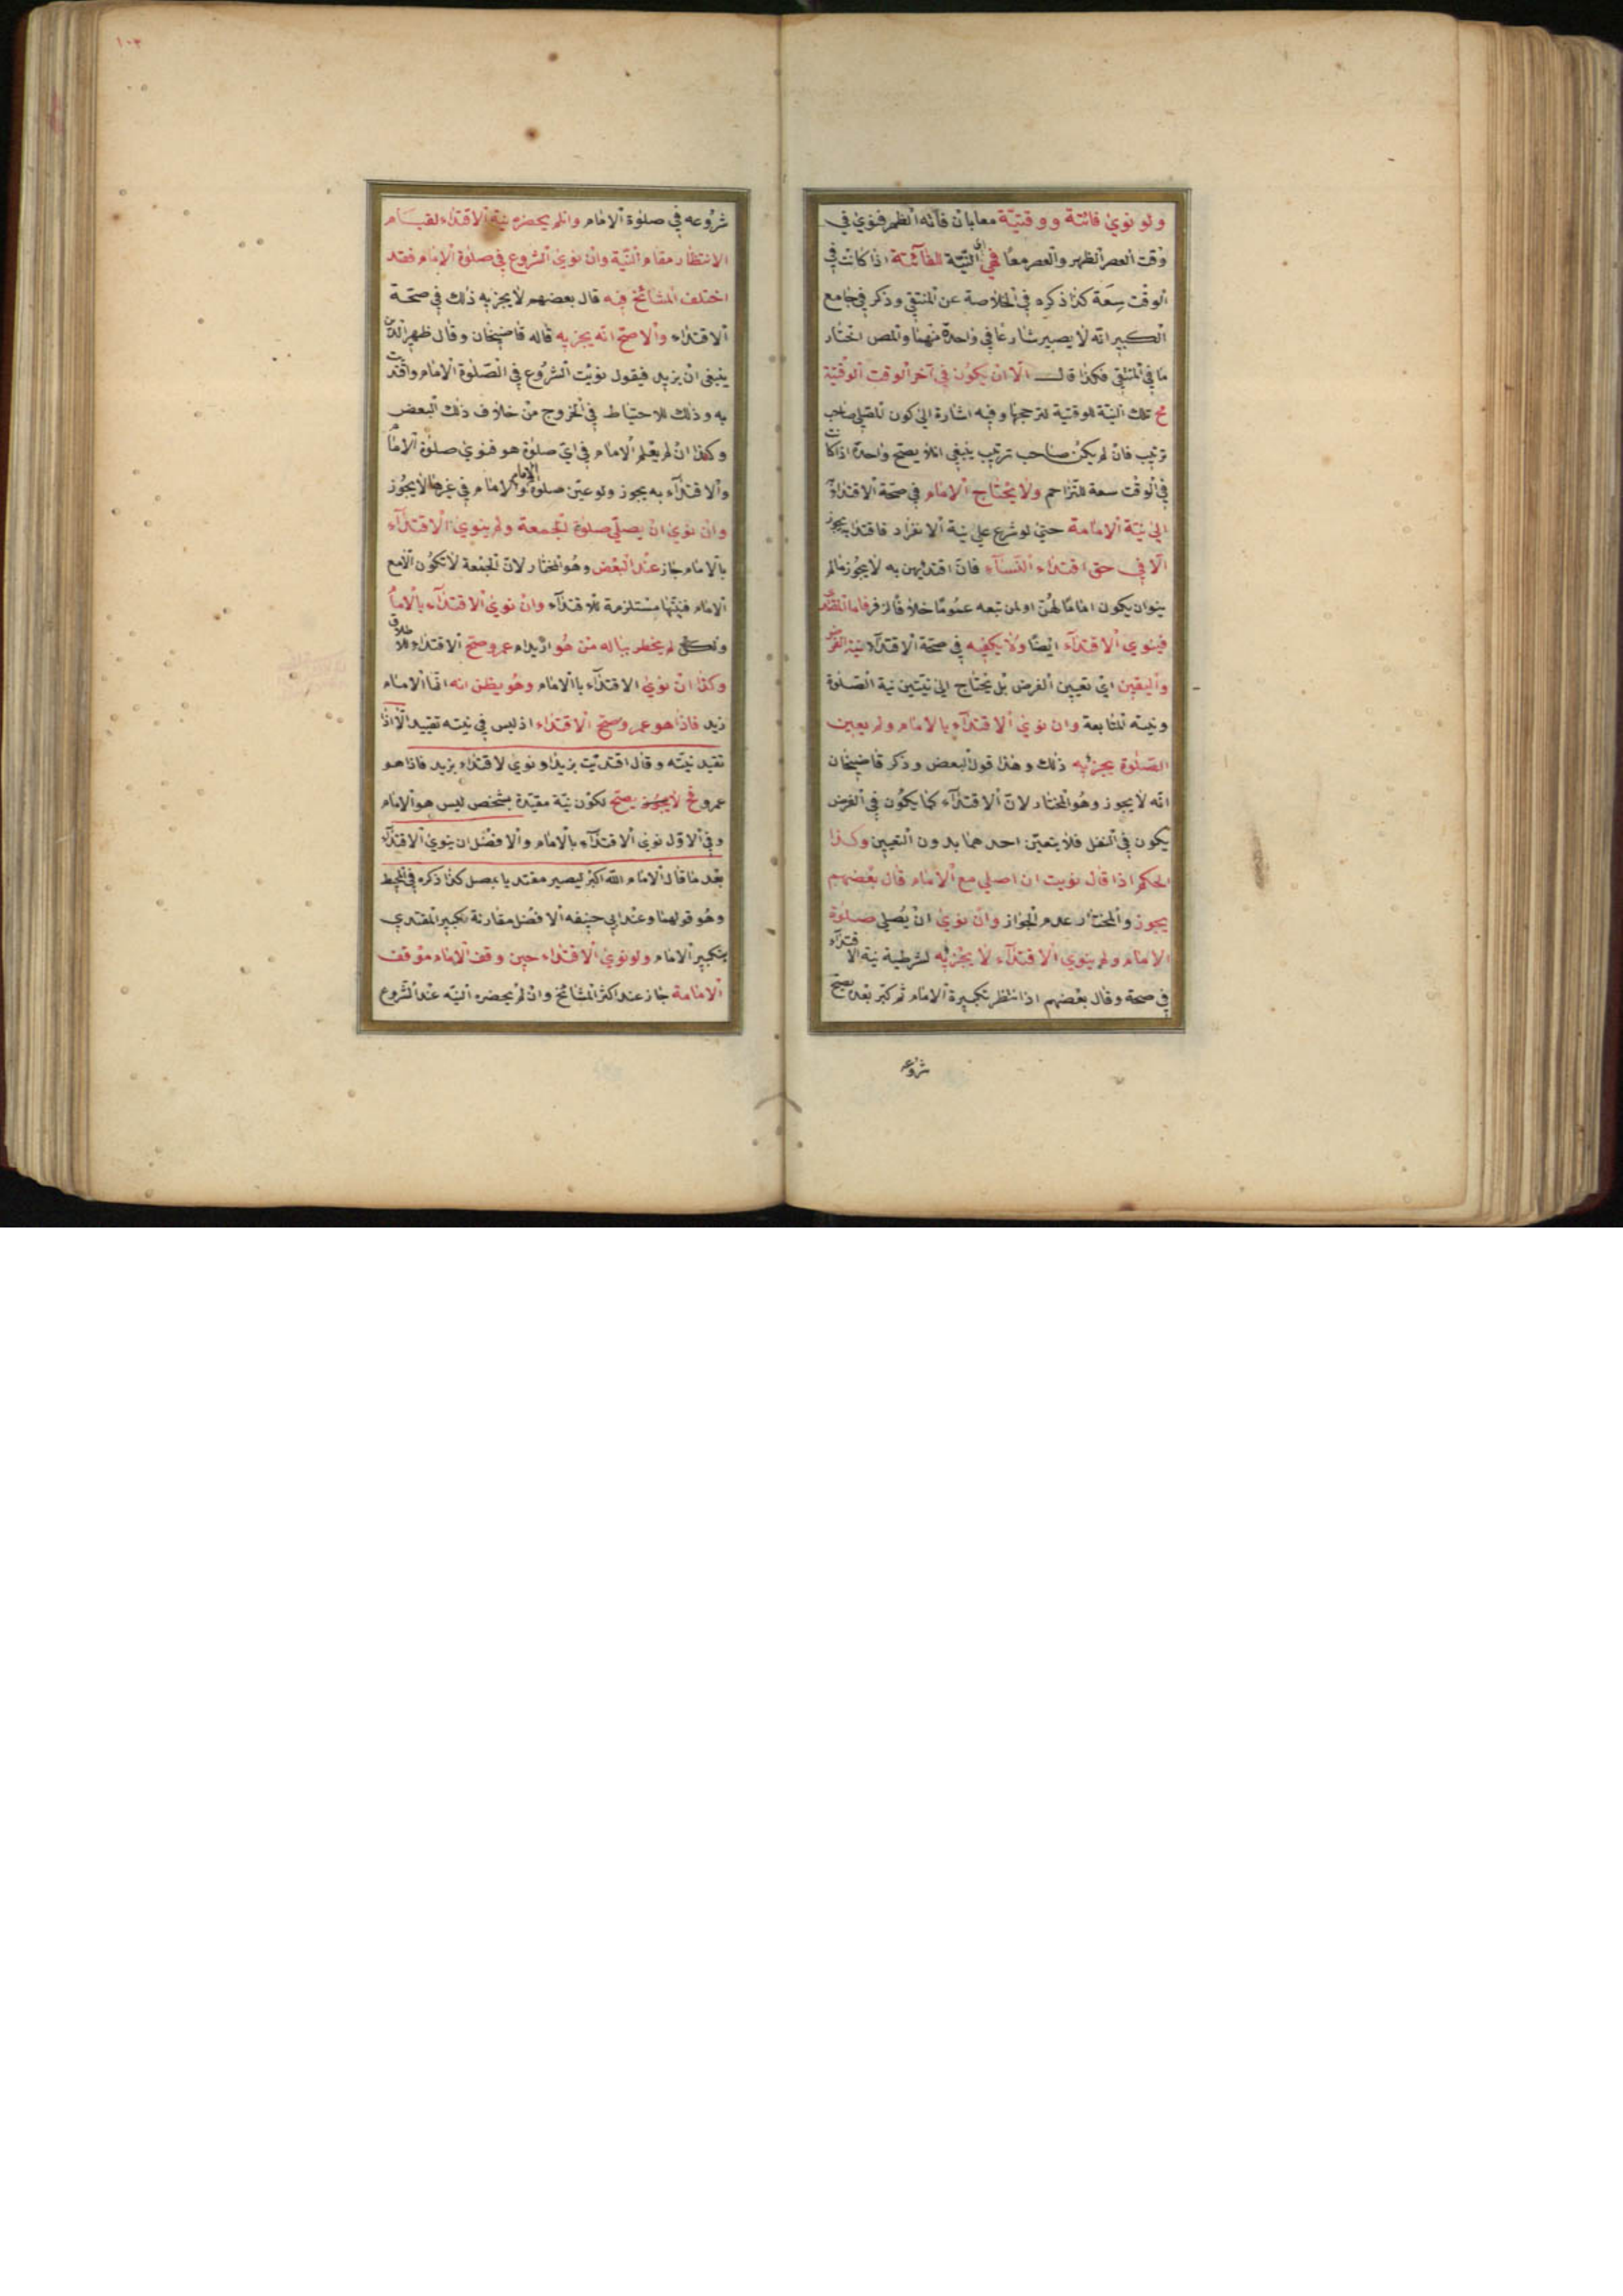 ولو نوى فائتة ووقتية معا بان فاته الظهر فنوى في
وقت العصر الظهر والعصر معا فهي اي النية للفائتة اذا كانت في
الوقت سعة كذا ذكره في الخلاصة عن المنتقى وذكر في جامع
الكبير انه لا يصير شارعا في واحدة منهما والمص اختار
ما في المنتقى فكذا قال الا ان يكون في آخر الوقت الوقتية
تلك النية للوقتية لترجحها وفيه اشارة الى كون المصلي صاحب
ترتيب فان لم يكن صاحب ترتيب ينبغي ان لا يصح واحدة اذا كانت
في الوقت سعة للتزاحم ولا يحتاج الامام في صحة الاقتداء
الى نية الامامة حتى لو شرع على نية الانفراد فاقتدا به يجوز
الا في حق اقتداء النساء فان اقتدايهن به لا يجوز مالم
ينوان يكون اماما لهن او لمن تبعه عموما خلافا لزفر فاما المقتدي
فينوي الاقتداء ايضا ولا يكفيه في صحة الاقتداء نية الفرض
واليقين اي تعيين الفرض بل يحتاج الى نيتين نية الصلوة
ونيته المتابعة وان نوى الاقتداء بالامام ولم يعين
الصلوة يجزئه ذلك وهذا قول البعض وذكر قاضيخان
انه لا يجوز وهو المختار لان الاقتداء كما يكون في الفرض
يكون في النفل فلا يتعين احدهما بدون التعيين وكذا
الحكم اذا قال نويت ان اصلي مع الامام قال بعضهم
يجوز والمختار عدم الجواز وان نوى ان يصلي صلوة
الامام ولم ينوي الاقتداء لا يجزيه لشرطية نية الاقتداء
في صحة وقال بعضهم اذا انتظر تكبيرة الامام ثم كبر بعده يصح
شروعه
١٠٢
شروعه في صلوة الامام وان لم يحضره نية الاقتداء لقيام
الانتظار مقام النية وان نوى الشروع في صلوة الامام فقد
اختلف المشائخ فيه قال بعضهم لا يجزيه ذلك في صحة
الاقتداء والاصح انه يجزيه قاله قاضيخان وقال ظهير الدين
ينبغي ان يزيد فيقول نويت الشروع في الصلوة الامام واقتديت
به وذلك للاحتياط في الخروج من خلاف ذلك البعض
وكذا ان لم يعلم الامام في اي صلوة هو فنوى صلوة الامام
والاقتداء به يجوز ولو عين صلوة والامام في غيرها لا يجوز
وان نوى ان يصلي صلوة الجمعة ولم ينوي الاقتداء
بالامام جاز عند البعض وهو المختار لان الجمعة لا تكون الا مع
الامام فنيتها مستلزمة للاقتداء وان نوى الاقتداء بالامام
ولكن لم يخطر بباله من هو ازيد ام عمرو صح الاقتداء
وكذا ان نوى الاقتداء باالامام وهو يظن انه اتما الامام
زيد فاذا هو عمرو صح الاقتداء اذ ليس في نيته تقييد الا اذا
تقيد نيته وقال اقتديت بزيد او نوى لاقتداء بزيد فاذا هو
عمرو لا يصح لكون نية مقيدة بشخص ليس هو الامام
وفي الاول نوى الاقتداء بالامام والافضل ان ينوي الاقتداء
بعد ما قال الامام الله اكبر ليصير مقتديا بمصل كذا ذكره في المحيط
وهو قولهما وعند ابي حنيفه الافضل مقارنة تكبير المقتدي
بتكبير الامام ولو نوى الاقتداء حين وقف الامام موقف
الامامة جاز عند اكثر المشائخ وان لم يحضره النيه عند الشروع